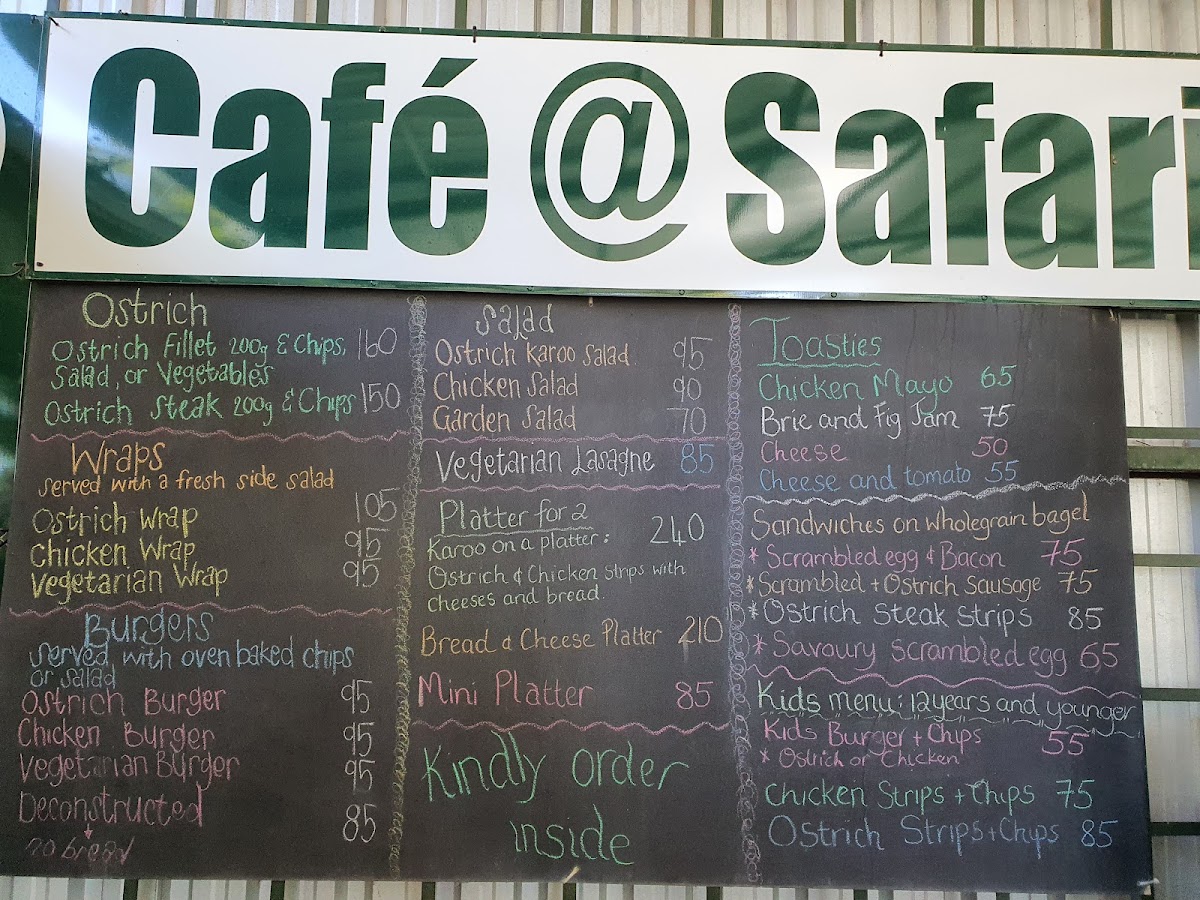 Café @ Safari
Ostrich
Ostrich Fillet 200g & Chips, 160
Salad, or Vegetables
Ostrich Steak 200g & Chips 150
Wraps
served with a fresh side salad
Ostrich Wrap 105
Chicken Wrap 95
Vegetarian Wrap 95
Burgers
served with oven baked chips
or salad
Ostrich Burger 95
Chicken Burger 95
Vegetarian Burger 95
Deconstructed 85
no bread
Salad
Ostrich Karoo Salad 95
Chicken Salad 90
Garden Salad 70
Vegetarian Lasagne 85
Platter for 2
Karoo on a platter: 240
Ostrich & Chicken Strips with
cheeses and bread.
Bread & Cheese Platter 210
Mini Platter 85
Kindly order
inside
Toasties
Chicken Mayo 65
Brie and Fig Jam 75
Cheese 50
Cheese and tomato 55
Sandwiches on wholegrain bagel
* Scrambled egg & Bacon 75
* Scrambled + Ostrich Sausage 75
* Ostrich Steak Strips 85
* Savoury Scrambled egg 65
Kids menu: 12 years and younger
Kids Burger + Chips 55
* Ostrich or Chicken
Chicken Strips + Chips 75
Ostrich Strips + Chips 85